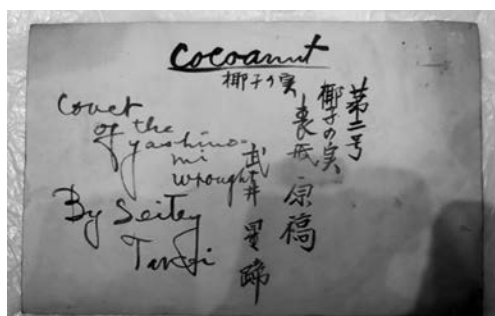 Cocoanut
椰子の実
Cover
of the
yashino-
mi
wrought
By Seitey
第二号
椰子の実
表紙原稿
武井星蹄